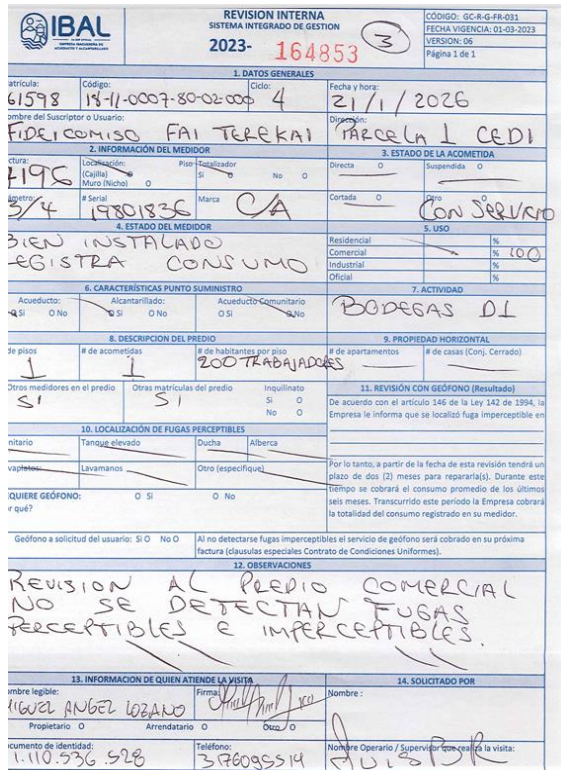 IBAL
REVISION INTERNA
SISTEMA INTEGRADO DE GESTION
2023- 164853
3
CÓDIGO: GC-R-G-FR-031
FECHA VIGENCIA: 01-03-2023
VERSION: 06
Página 1 de 1
1. DATOS GENERALES
atrícula: Código: Ciclo: Fecha y hora:
61598 18-11-0007-80-02-000 4 21/1/2026
ombre del Suscriptor o Usuario: Dirección:
FIDEICOMISO FAI TEREKAI PARCELA 1 CEDI
2. INFORMACIÓN DEL MEDIDOR
ctura: Localización: Piso Totalizador
(Cajilla) O Si O No O
Muro (Nicho) O
4196
ámetro: # Serial Marca
3/4 19801836 C/A
3. ESTADO DE LA ACOMETIDA
Directa O Suspendida O
Cortada O Otro O
CON SERVICIO
4. ESTADO DEL MEDIDOR
BIEN INSTALADO
REGISTRA CONSUMO
5. USO
Residencial %
Comercial % 100
Industrial %
Oficial %
6. CARACTERÍSTICAS PUNTO SUMINISTRO
Acueducto: Alcantarillado: Acueducto Comunitario
O Si O No O Si O No O Si O No
7. ACTIVIDAD
BODEGAS D1
8. DESCRIPCION DEL PREDIO
de pisos # de acometidas # de habitantes por piso
1 1 200 TRABAJADORES
9. PROPIEDAD HORIZONTAL
# de apartamentos # de casas (Conj. Cerrado)
Otros medidores en el predio Otras matrículas del predio Inquilinato
SI SI Si O
No O
10. LOCALIZACIÓN DE FUGAS PERCEPTIBLES
nitario Tanque elevado Ducha Alberca
vaplatos: Lavamanos Otro (especifique)
QUIERE GEÓFONO: O Si O No
r qué?
11. REVISIÓN CON GEÓFONO (Resultado)
De acuerdo con el artículo 146 de la Ley 142 de 1994, la
Empresa le informa que se localizó fuga imperceptible en
Por lo tanto, a partir de la fecha de esta revisión tendrá un
plazo de dos (2) meses para repararla(s). Durante este
tiempo se cobrará el consumo promedio de los últimos
seis meses. Transcurrido este período la Empresa cobrará
la totalidad del consumo registrado en su medidor.
Geófono a solicitud del usuario: Si O No O
Al no detectarse fugas imperceptibles el servicio de geófono será cobrado en su próxima
factura (clausulas especiales Contrato de Condiciones Uniformes).
12. OBSERVACIONES
REVISION AL PREDIO COMERCIAL
NO SE DETECTAN FUGAS
PERCEPTIBLES E IMPERCEPTIBLES.
13. INFORMACION DE QUIEN ATIENDE LA VISITA
ombre legible: Firma:
MIGUEL ANGEL LOZANO
Propietario O Arrendatario O Otro O
ocumento de identidad: Teléfono:
1.110.536.528 3176095514
14. SOLICITADO POR
Nombre :
Nombre Operario / Supervisor que realiza la visita: